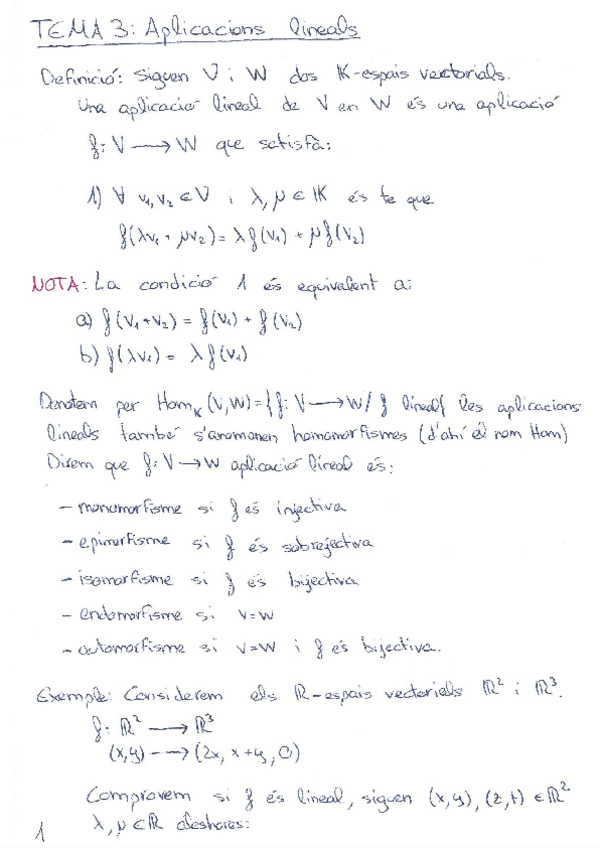 TEMA 3: Aplicacions lineals
Definició: Siguen V i W dos K-espais vectorials.
Una aplicació lineal de V en W és una aplicació
f: V → W que satisfà:
1) ∀ v₁, v₂ ∈ V i λ, μ ∈ K és te que
f(λv₁ + μv₂) = λf(v₁) + μf(v₂)
NOTA: La condició 1 és equivalent a:
a) f(v₁+v₂) = f(v₁) + f(v₂)
b) f(λv₁) = λf(v₁)
Denotem per Hom_K(V,W) = {f: V → W / f lineal} les aplicacions
lineals també s'anomenen homomorfismes (d'ahí el nom Hom)
Direm que f: V → W aplicació lineal és:
- monomorfisme si f és injectiva
- epimorfisme si f és sobrejectiva
- isomorfisme si f és bijectiva
- endomorfisme si V=W
- automorfisme si V=W i f és bijectiva.
Exemple: Considerem els R-espais vectorials R² i R³.
f: R² → R³
(x,y) --→ (2x, x+y, 0)
Comprovem si f és lineal, siguen (x,y), (z,t) ∈ R²
λ, μ ∈ R aleshores:
1